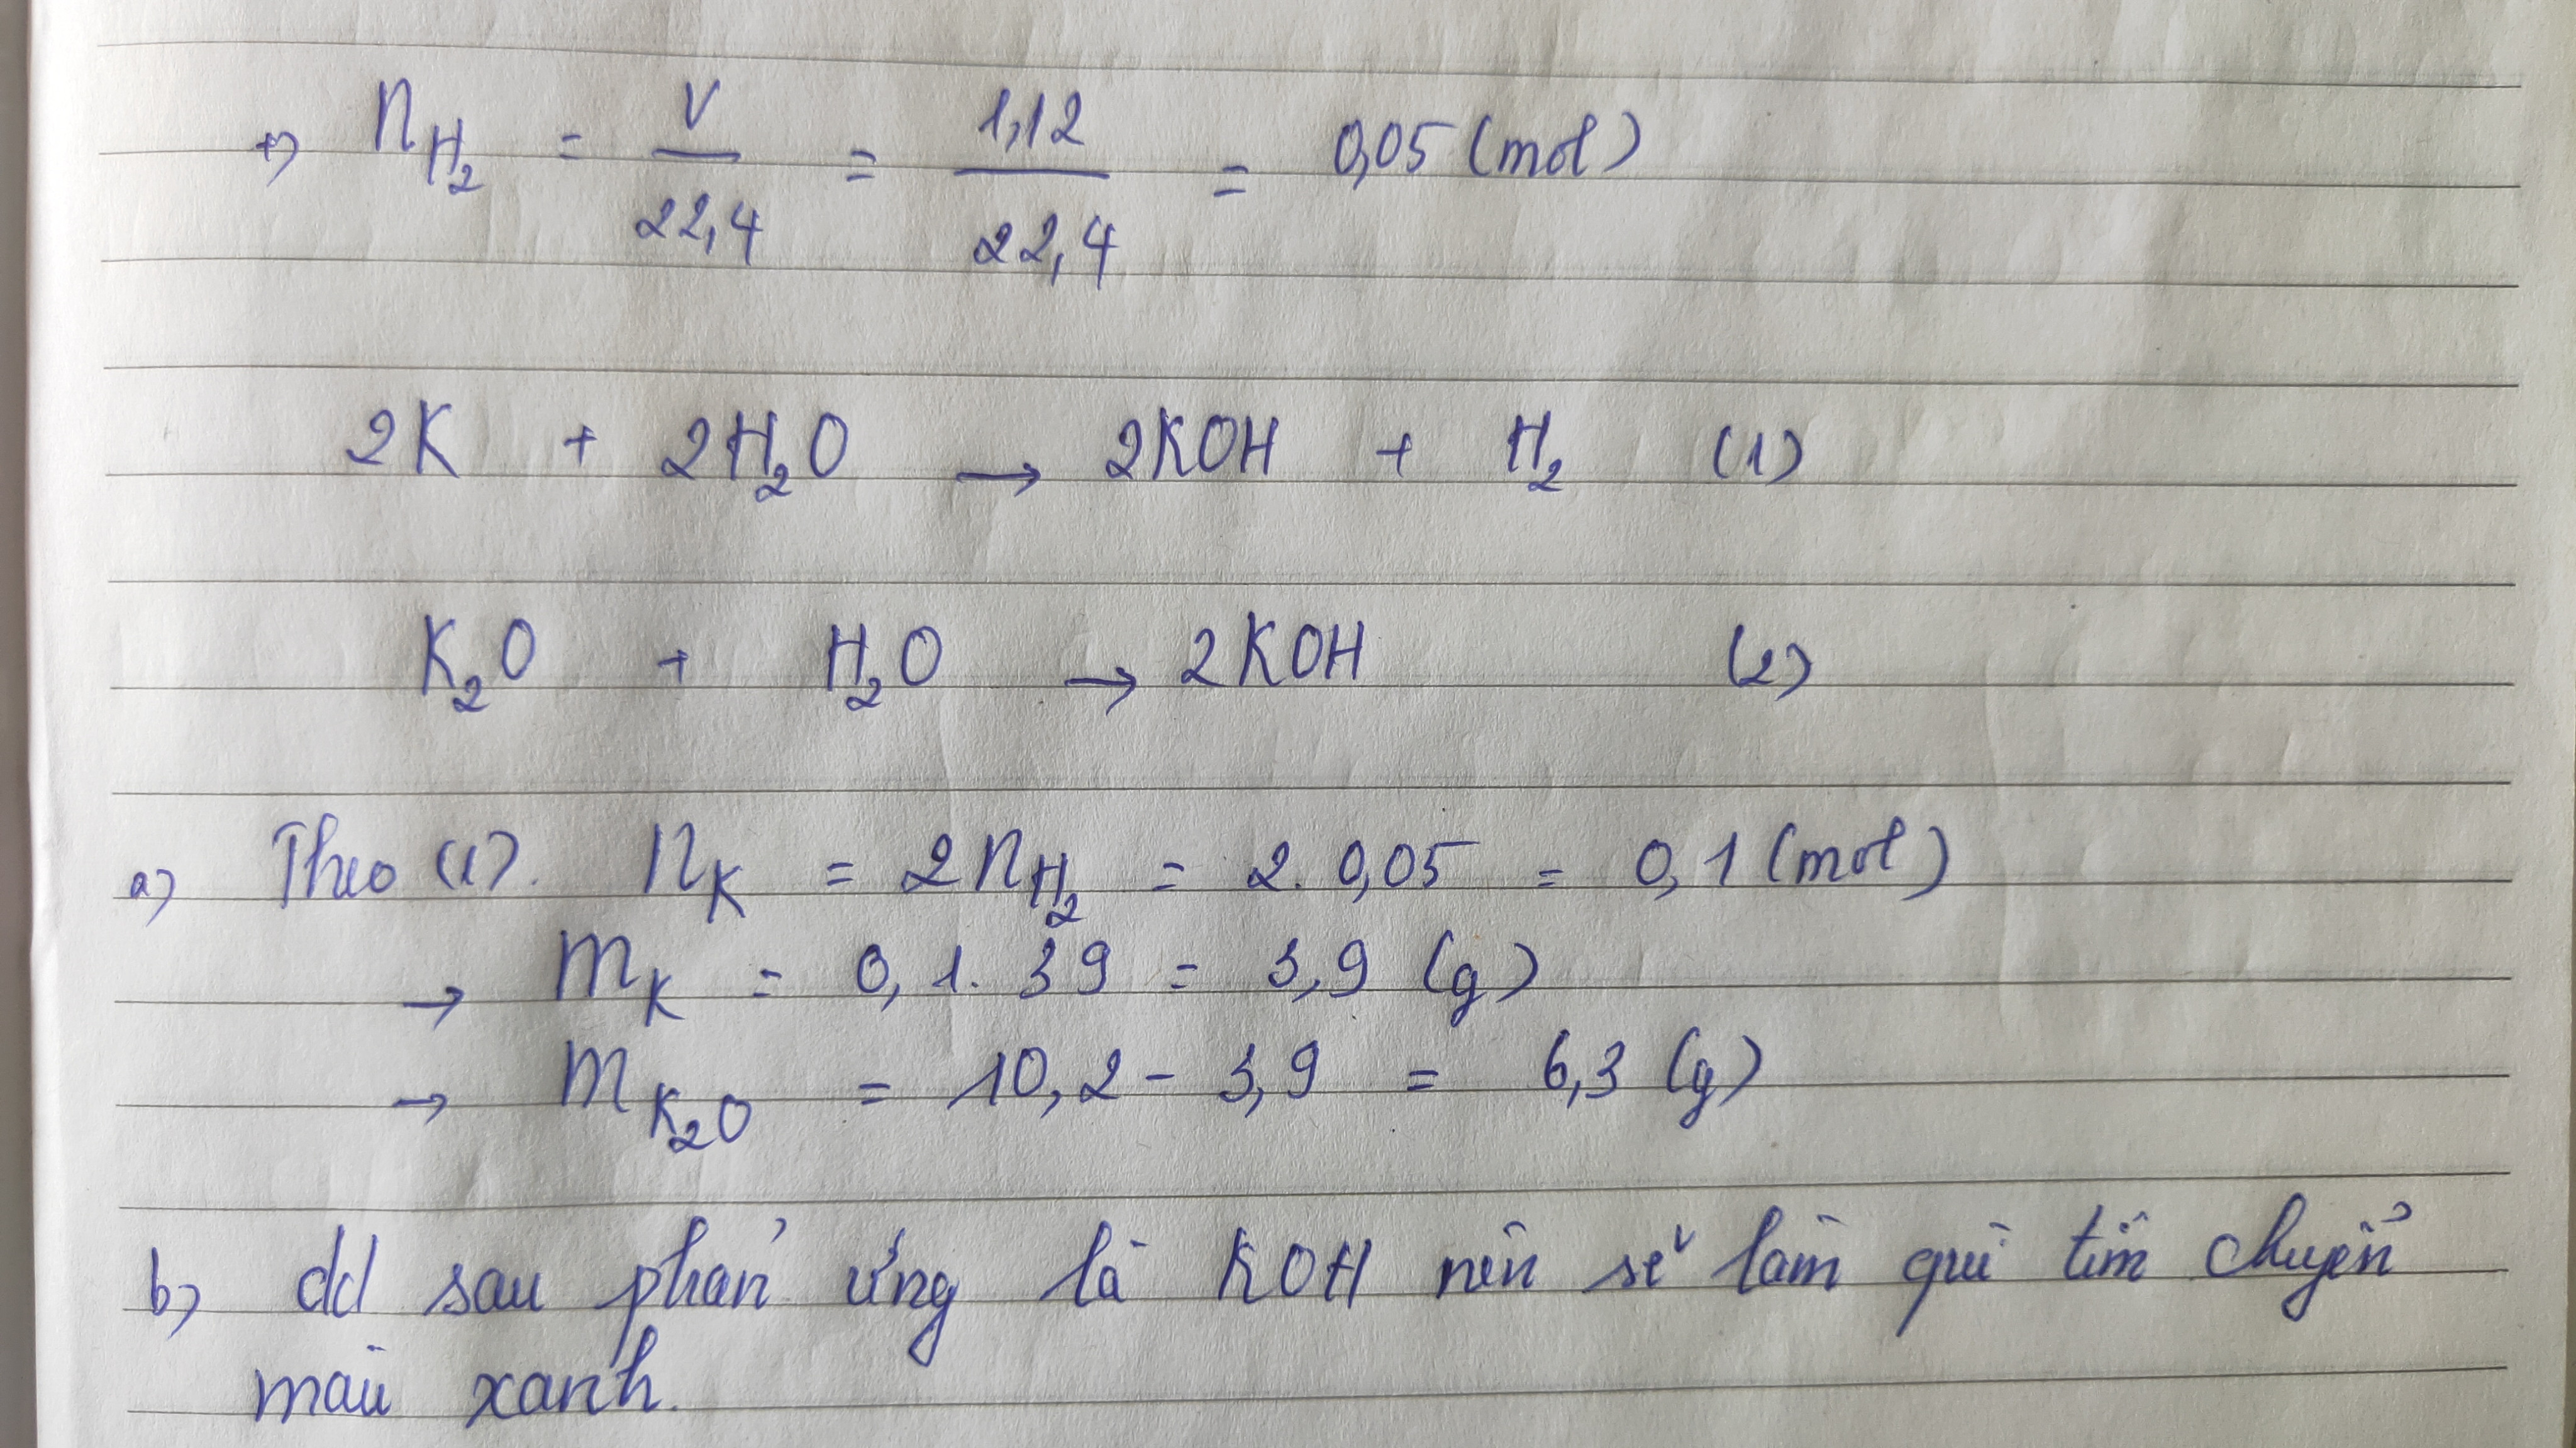 +) nH₂ = V/22,4 = 1,12/22,4 = 0,05 (mol)
2K + 2H₂O → 2KOH + H₂ (1)
K₂O + H₂O → 2KOH (2)
a) Theo (1). nK = 2nH₂ = 2.0,05 = 0,1 (mol)
→ mK = 0,1.39 = 3,9 (g)
→ mK₂O = 10,2 - 3,9 = 6,3 (g)
b) dd sau phản ứng là KOH nên sẽ làm quì tím chuyển
màu xanh.